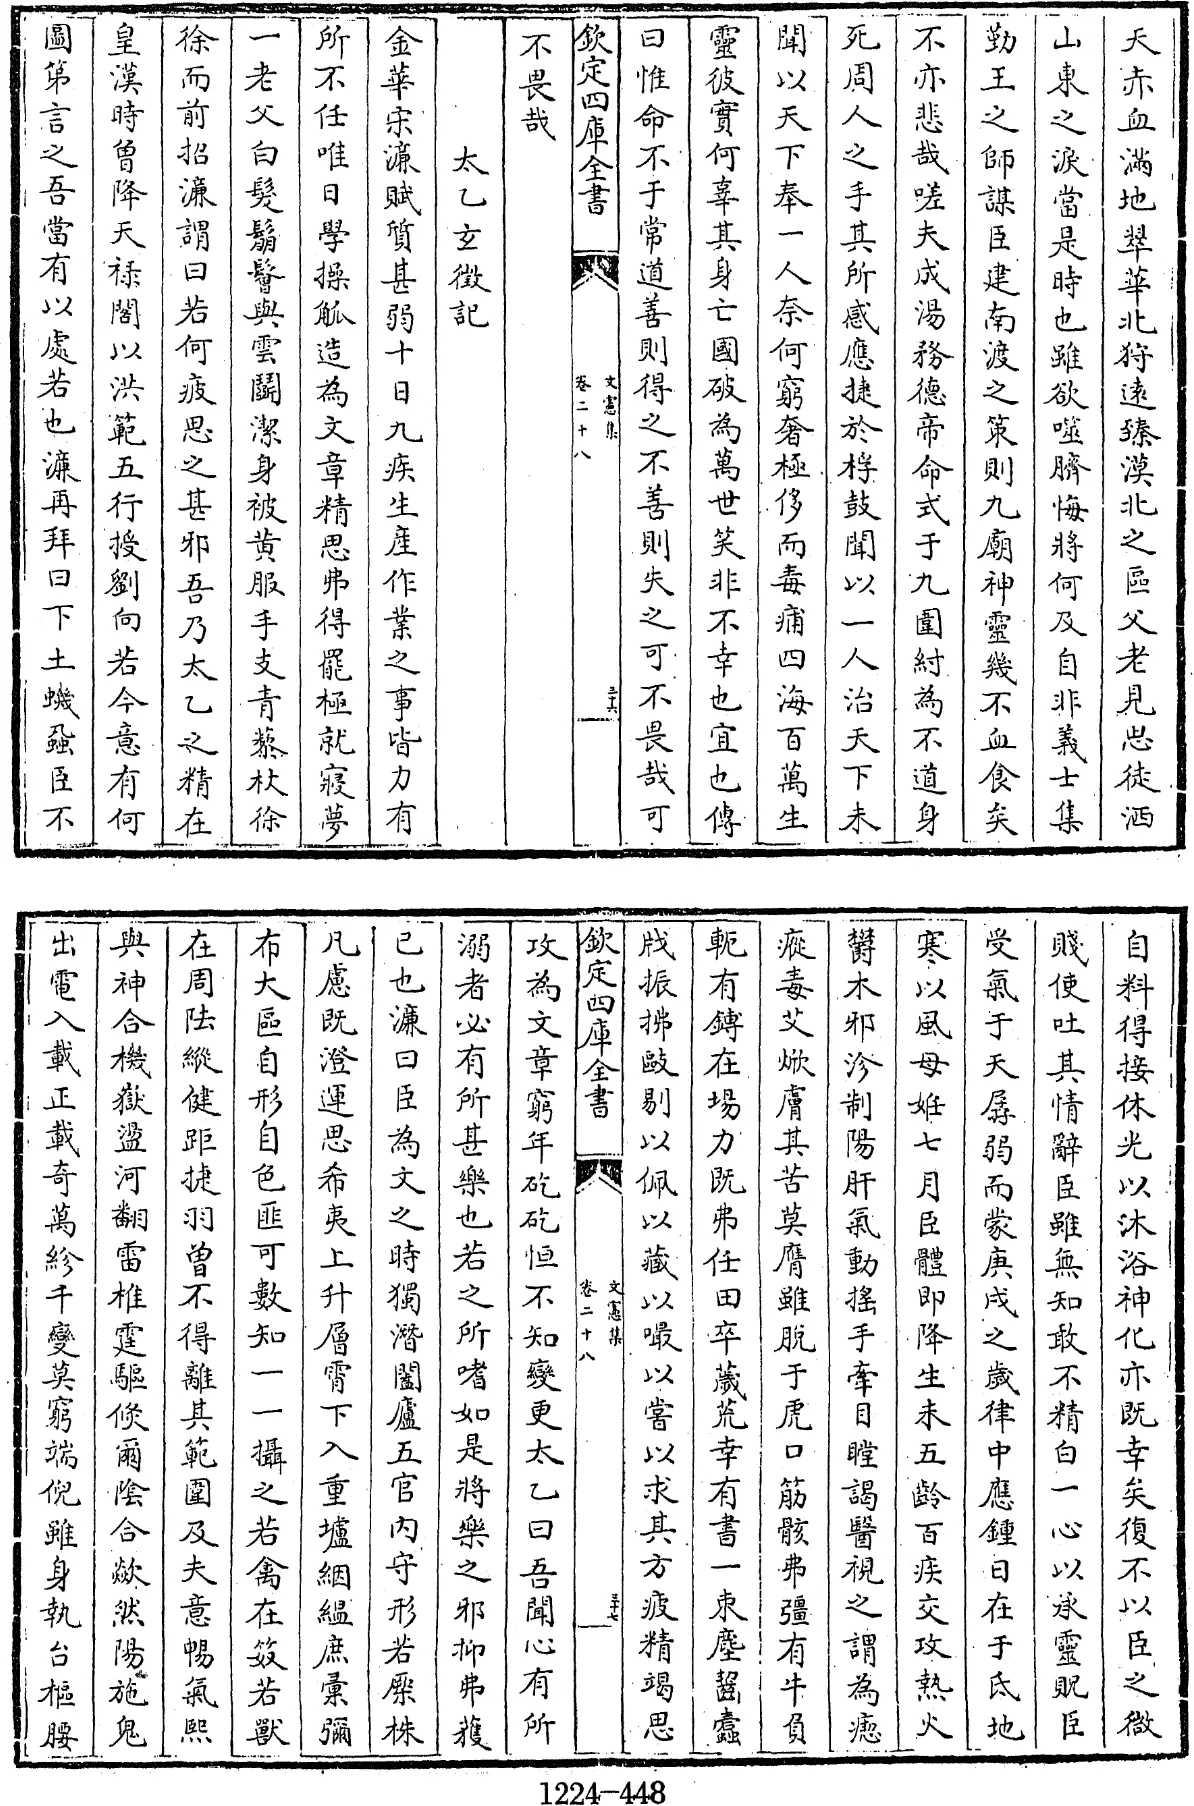 天赤血滿地翠華北狩逺臻漠北之區父老見思徒洒
山東之淚當是時也雖欲噬臍悔將何及自非義士集
勤王之師謀臣建南渡之策則九廟神靈幾不血食矣
不亦悲哉嗟夫成湯務德帝命式于九圍紂為不道身
死周人之手其所感應捷於桴鼓聞以一人治天下未
聞以天下奉一人奈何窮奢極侈而毒痡四海百萬生
靈彼實何辜其身亡國破為萬世笑非不幸也宜也傳
曰惟命不于常道善則得之不善則失之可不畏哉可
欽定四庫全書
文憲集
卷二十八
三十六
不畏哉
太乙玄徵記
金華宋濂賦質甚弱十日九疾生産作業之事皆力有
所不任唯日學操觚造為文章精思弗得罷極就寢夢
一老父白髮鬅鬙與雲鬭潔身被黄服手支青藜杖徐
徐而前招濂謂曰若何疲思之甚邪吾乃太乙之精在
皇漢時曾降天祿閣以洪範五行授劉向若今意有何
圖第言之吾當有以處若也濂再拜曰下土蟣蝨臣不
自料得接休光以沐浴神化亦既幸矣復不以臣之微
賤使吐其情辭臣雖無知敢不精白一心以承靈貺臣
受氣于天孱弱而蒙庚戌之歲律中應鍾日在于氐地
寒以風母妊七月臣體即降生未五齡百疾交攻熱火
欝木邪沴制陽肝氣動搖手牽目瞠謁醫視之謂為瘛
瘲毒艾焮膚其苦莫膺雖脫于虎口筋骸弗彊有牛負
軛有鎛在場力既弗任田卒薉荒幸有書一束塵䵝蠧
戕振拂敺剔以佩以藏以嘬以嘗以求其方疲精竭思
欽定四庫全書
文憲集
卷二十八
三十七
攻為文章窮年矻矻恒不知變更太乙曰吾聞心有所
溺者必有所甚樂也若之所嗜如是將樂之邪抑弗獲
已也濂曰臣為文之時獨潛闔廬五官内守形若橜株
凡慮既澄運思希夷上升層霄下入重壚絪緼庶彙彌
布大區自形自色匪可數知一一攝之若禽在笯若獸
在周阹縱健距捷羽曾不得離其範圍及夫意暢氣熙
與神合機嶽盪河翻雷椎霆驅倐爾陰合歘然陽施鬼
出電入載正載奇萬紾千變莫窮端倪雖身執台樞腰
1224-448